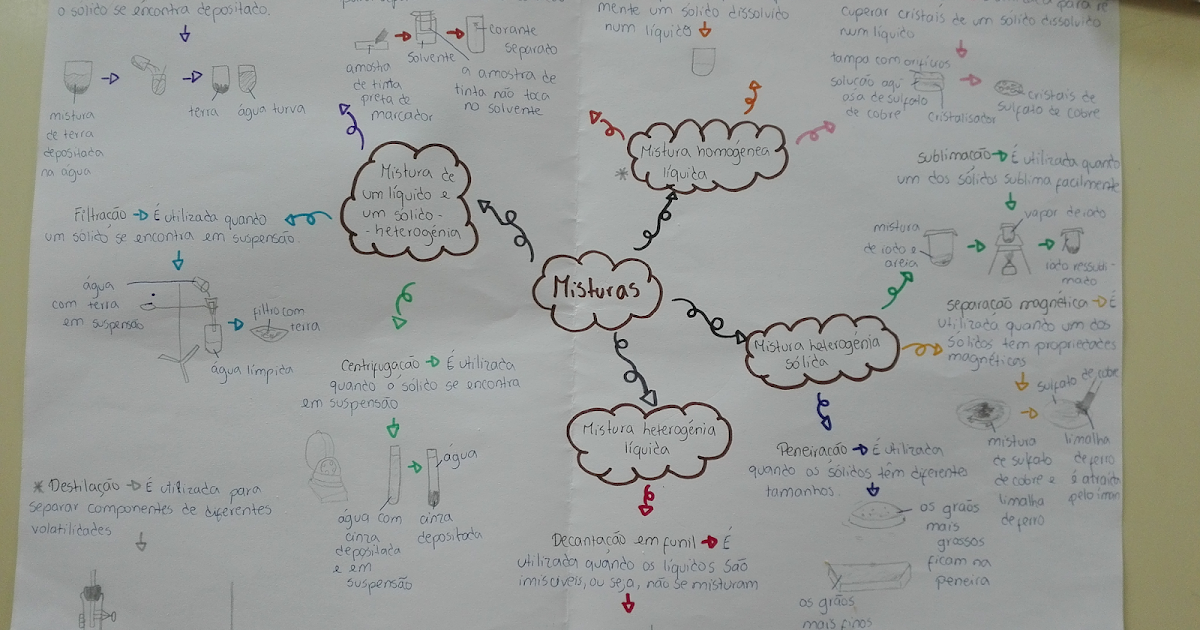 o sólido se encontra depositado.
mistura
de terra
depositada
na água
terra
água turva
amostra
de tinta
preta de
marcador
solvente
corante
separado
a amostra de
tinta não toca
no solvente
mente um sólido dissolvido
num líquido
cuperar cristais de um sólido dissolvido
num líquido
tampa com orifícios
solução aquosa de sulfato
de cobre
cristalisador
cristais de
sulfato de cobre
Mistura de
um líquido e
um sólido -
- heterogénia
Mistura homogénea
* líquida
Misturas
Mistura heterogénia
sólida
Mistura heterogénia
líquida
Filtração → É utilizada quando
um sólido se encontra em suspensão.
água
com terra
em suspensão
filtro com
terra
água límpida
Centrifugação → É utilizada
quando o sólido se encontra
em suspensão
água com
cinza
depositada
e em
suspensão
água
cinza
depositada
* Destilação → É utilizada para
separar componentes de diferentes
volatilidades
Decantação em funil → É
utilizada quando os líquidos são
imiscíveis, ou seja, não se misturam
Sublimação → É utilizada quando
um dos sólidos sublima facilmente
mistura
de iodo e
areia
vapor de iodo
iodo ressubli-
mado
separação magnética → É
utilizada quando um dos
sólidos tem propriedades
magnéticas
mistura
de sulfato
de cobre e
limalha
de ferro
sulfato de cobre
limalha
de ferro
é atraída
pelo íman
Peneiração → É utilizada
quando os sólidos têm diferente
tamanhos.
os grãos
mais
grossos
ficam na
peneira
os grãos
mais finos